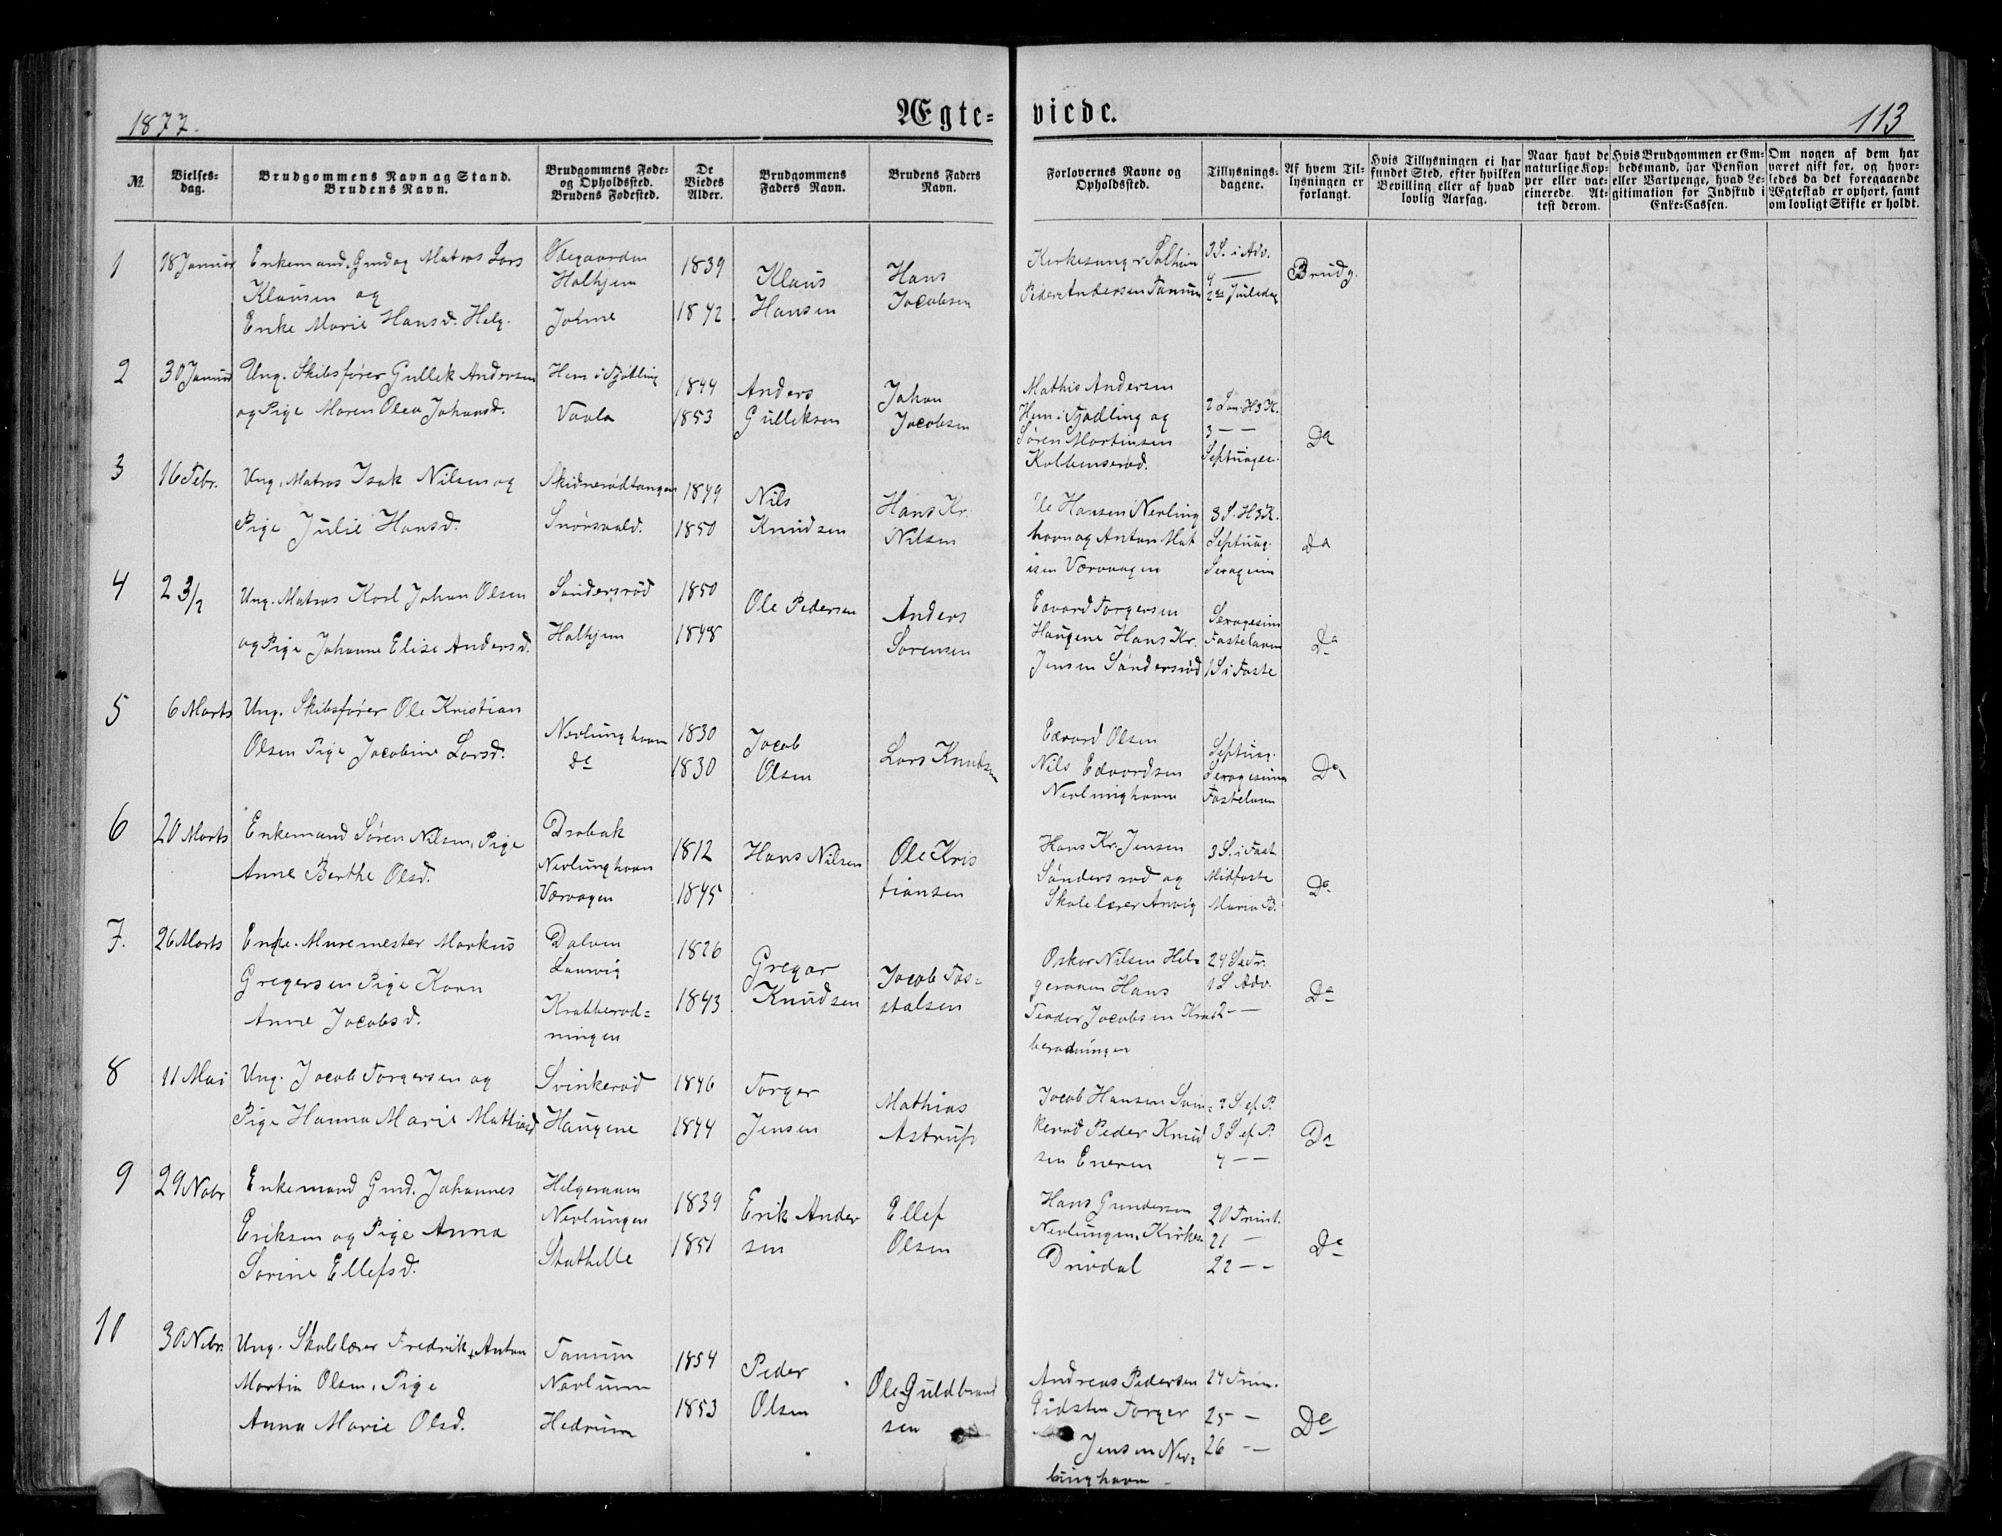 1877.
Ægte-
viede.
113
№.
Vielses-
dag.
Brudgommens Navn og Stand.
Brudens Navn.
Brudgommens Føde-
og Opholdsted.
Brudens Fødested.
De
Viedes
Alder.
Brudgommens
Faders Navn.
Brudens Faders
Navn.
Forlovernes Navne og
Opholdssted.
Tillysnings-
dagene.
Af hvem Til-
lysningen er
forlangt.
Hvis Tillysningen ei har
fundet Sted, efter hvilken
Bevilling eller af hvad
lovlig Aarsag.
Naar havt de
naturlige Kop-
per eller vac-
cinerede. At-
test derom.
Hvis Brudgommen er Em-
bedsmand, har Pension
eller Vartpenge, hvad Le-
gitimation for Indskud i
Enke-Cassen.
Om nogen af dem har
været gift før, og hvor-
ledes da det foregaaende
Ægteskab er ophørt, samt
om lovligt Skifte er holdt.
1
18 Januar
Enkemand, Gmd og Matros Lars
Klausen og
Enke Marie Hansd. Helg.
Ødegaarden
Halhjem
Jahne
1839
1842
Klaus
Hansen
Hans
Jacobsen
Kirkesanger Solheim
Peder Andersen Tanum
3 S. i Adv.
4 —
2den Juledag
Brudg.
2
30 Januar
Ung. Skibsfører Gullek Andersen
og Pige Maren Olea Johansd.
Hem i Tjødling
Vaala
1844
1853
Anders
Gulleksen
Johan
Jacobsen
Mathis Andersen
Hem i Tjødling og
Søren Martinsen
Kolbensrød.
2 Søn. H3K.
3 — —
Septuages.
Do
3
16 Febr.
Ung. Matros Isak Nilsen og
Pige Julie Hansd.
Skidnerødtangen
Snørsvald.
1849
1850
Nils
Knudsen
Hans Kr.
Nilsen
Ole Hansen Nevling
havn og Anton Mat
isen Værvagen
3 S. H3K.
Septuag.
Sexagesim
Do
4
23/2
Ung. Matros Karl Johan Olsen
og Pige Johanne Elise Andersd.
Søndersrød
Halhjem
1850
1848
Ole Pedersen
Anders
Sørensen
Edvard Torgersen
Haugene Hans Kr.
Jensen Søndersrød
Sexagesim
Fastelavn
1 S i Faste
Do
5
6 Marts
Ung. Skibsfører Ole Kristian
Olsen Pige Jacobine Larsd.
Nevlunghavn
do
1830
1830
Jacob
Olsen
Lars Knudsen
Edvard Olsen
Nils Edvardsen
Nevlunghavn
Septuag.
Sexagesima
Fastelavn
Do
6
20 Marts
Enkemand Søren Nilsen, Pige
Anne Berthe Olsd.
Drøbak
Nevlunghavn
Værvagen
1812
1845
Hans Nilsen
Ole Kris
tiansen
Hans Kr. Jensen
Søndersrød og
Skolelærer Anvig
3 S. i Fast
Midfaste
Maria B.
Do
7.
26 Marts
Enke. Muremester Markus
Gregersen Pige Karn
Anne Jacobsd.
Dalven
Laurvig
Krabberød-
ningen
1826
1843
Gregar
Knudsen
Jacob Tos-
stalsen
Oskar Nilsen Hel-
geraaen Hans
Teodor Jacobsen Krab
berødningen
24 S e Tr.
1 S Adv.
2 — —
Do
8
11 Mai
Ung. Jacob Torgersen og
Pige Hanna Marie Mathiasd
Svinkerød
Haugene
1846
1844
Torger
Jensen
Mathias
Astrup
Jacob Hansen Svin-
kerød Peder Knud
sen Eneren
2 S. ef P.
3 S ef P.
4 — —
Do
9
29 Novbr
Enkemand Gmd. Johannes
Eriksen og Pige Anna
Sørine Ellefsd.
Helgeraaen
Nevlungen
Stathelle
1839
1851
Erik Ander
sen
Ellef
Olsen
Hans Gundersen
Nevlungen, Kirkes.
Drivdal
20 Trinit.
21 —
22 — —
Do
10
30 Nobr.
Ung. Skolelærer Fredrik Anton
Martin Olsen, Pige
Anna Marie Olsd.
Tanum
Navlunn
Hedrum
1854
1853
Peder
Olsen
Ole Guldbrand
sen
Andreas Pedersen
Gidsten Torger
Jensen Nev-
lunghavn —
24 Trin.
25 —
26 —
Do